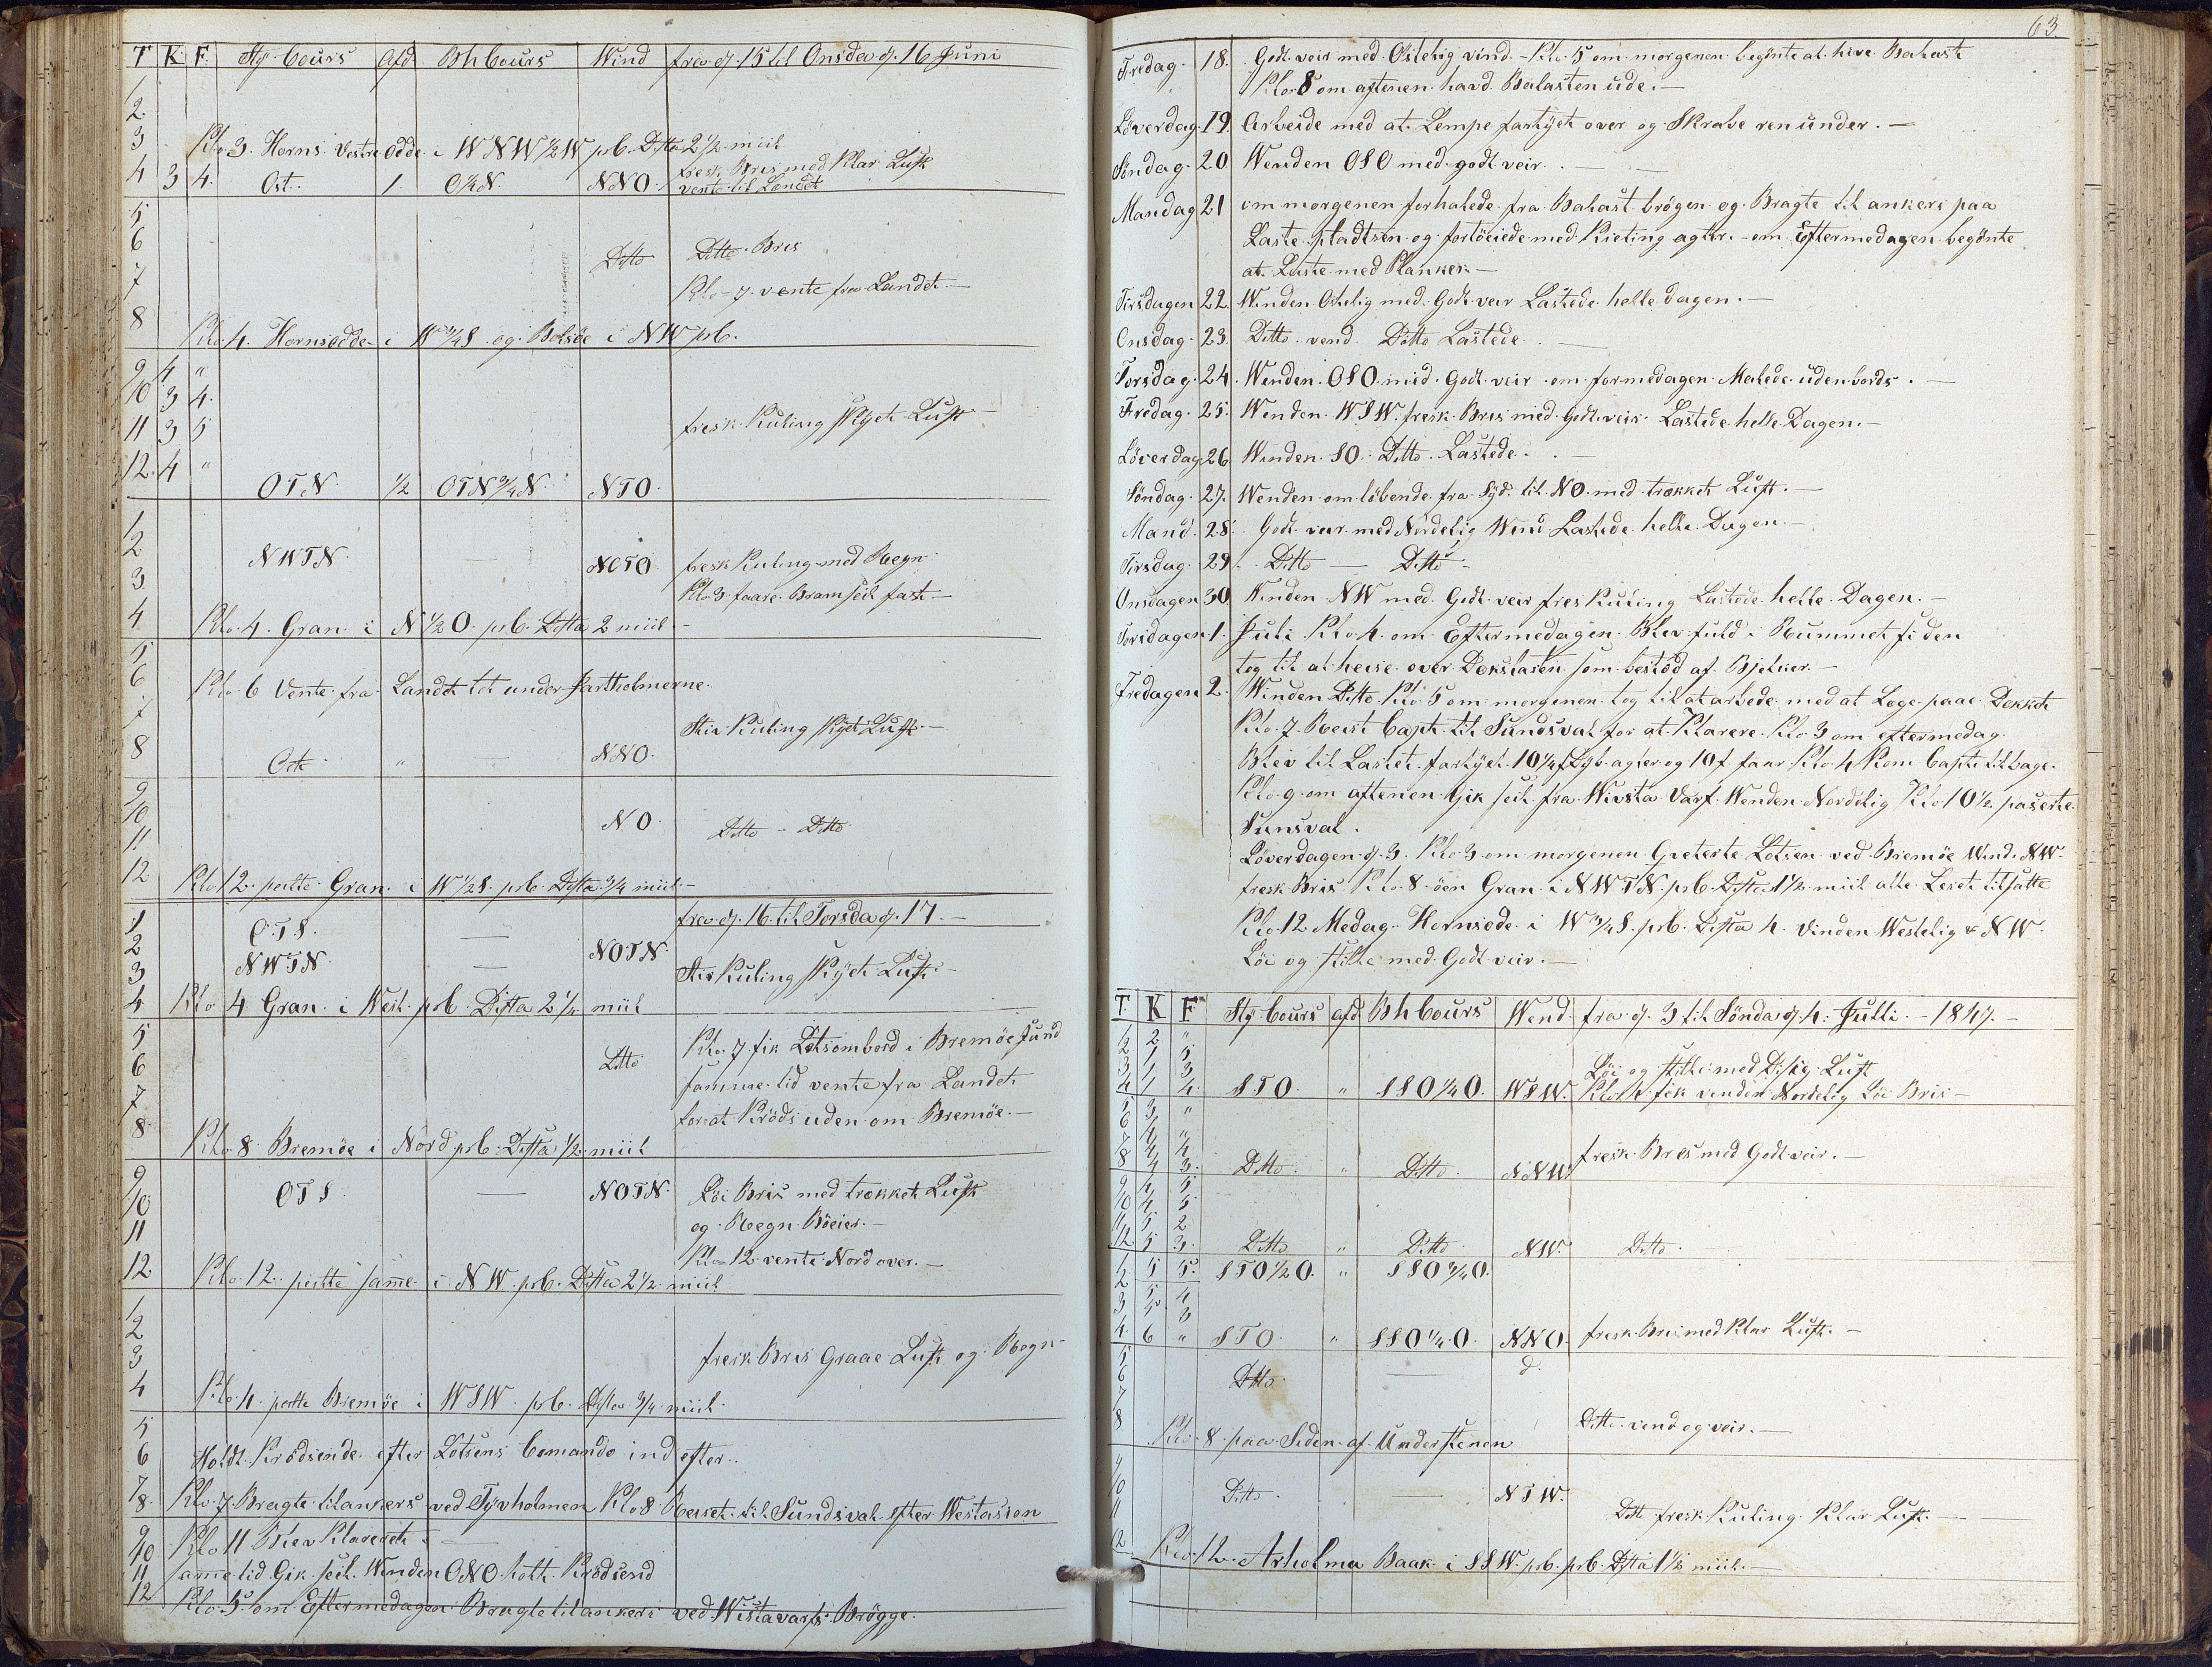 T K F Sty Cours Afd Bh Cours Wind fra d. 15 til Onsdag d. 16 Juni
1
2
3
Klo 3. Horns Vestre Odde i W N W ½ W pr b. Dista 2 ½ miil
4 3 4. Ost. 1. O ¼ N. N N O. fresk Bris med Klar Luft
vente til Landet
5
6 Ditto Ditto Bris
7 Klo 7. vente fra Landet.—
8
Klo 4. Hornsodde i W ¾ S. og Bolsöe i N W pr b.
9 4 "
10 3 4.
11 3 5 fresk Kuling Skyet Luft—
12. 4 "
O T N. ½ O T N ¾ N. N T O.
1
2 N W T N. — N O T O fresk Kuling med Regn
3 Klo 3 faare Bramseil fast—
4 Klo 4. Gran i N ½ O. pr b. Dista 2 miil.—
5
6 Klo 6 Vente fra Landet tet under Jartholmerne.
7 Stiv Kuling Skyet Luft.—
8 Ost " — N N O.
9
10 N O. Ditto - Ditto.
11
12 Klo 12. peilte Gran i W ½ S. pr b. Dista ¾ miil.—
fra d. 16. til Torsdag d. 17.—
1 O. T S. —
2 N W T N. — N O T N.
3 Stiv Kuling Skyet Luft.—
4 Klo 4 Gran i West. pr b. Dista 2 ¼ miil
5 Klo 7 fik Lotsombord i Bremöe Sund
6 Ditto samme tid vente fra Landet
7 for at Kröds uden om Bremöe.—
8. Klo 8 Bremöe i Nord pr b. Dista ½ miil
9 O T S — N O T N. Löi Bris med trokket Luft
10 og Regn Böeier.—
11
12 Klo 12 vente Nord over.—
Klo 12. peilte same i N W. pr b. Dista 2 ½ miil
1
2 fresk Bris Graae Luft og Regn
3
4 Klo 4. peilte Bremöe i W S W. pr b. Dista ¾ miil.
5
6 Holdt Krödsende efter Lotsens Comando ind efter.
7
8. Klo 7 Bragte til ankers ved Tyvholmen Klo 8 Reiset til Sundsval efter Westasion
9
10 Klo 11 Blev Klareret i —
11 same tid Gik seil. Winden O N O. holt. Krödsend
12 Klo 5 om Eftermedagen Bragte til ankers ved Wista varfs Brögge.
63
Fredag. 18. Godt veir med Ostelig vind.- Klo 5 om morgenen begönte at hive Balast
Klo 8 om aftenen havd Balasten ude.—
Löverdag. 19. Arbeide med at Lempe fartyet over og Skrabe ren under.—
Söndag. 20 Wenden O S O med godt veir.—
Mandag 21 om morgenen forhalede fra Balast brögen og Bragte til ankers paa
Laste pladtsen og fortöeiede med Kieting agter.- om Eftermedagen begönte
at Laste med Planker.—
Tirsdagen 22. Winden Ostelig med Godt veir Lastede helle dagen.—
Onsdag. 23. Ditto vend Ditto Lastede.—
Torsdag. 24. Winden O S O mid Godt veir om formedagen Malede udenbords.—
Fredag. 25. Wenden W S W. fresk Bris med Godt veir. Lastede helle Dagen.—
Löverdag 26. Winden S O. Ditto. Lastede.—
Söndag. 27. Wenden omlöbende fra Syd til N O. med trokket Luft.—
Mand. 28. Godt veir med Nordelig Wind Lastede helle Dagen.—
Tirsdag. 29. Ditto — Ditto.
Onsdagen 30 Winden N W med Godt veir fresk Kuling Lastede helle Dagen.—
Torsdagen 1. Juli Klo 4. om Eftermedagen Blev fuld i Rummet siden
tog til at heise over Dekslasten som bestod af Bjelker.—
Fredagen 2. Winden Ditto. Klo 5 om morgenen tog til at arbede med at Lege paa Dekket
Klo 7. Reist Capt. til Sundsval for at Klarere. Klo 3 om eftermedag
Blev til Lastet. fartyet 10 ¼ f Dyb agter og 10 f faar Klo 4 Kom Capt. tilbage.
Klo 9 om aftenen Gik seil fra Wivsta Varf Wenden Nordelig Klo 10 ½ paserte
Sunsval.
Löverdagen d. 3. Klo 3 om morgenen Qveterte Lotsen ved Bremöe Wind. N W.
fresk Bris Klo 8 öen Gran i N W T N. pr b. Dista 1 ½ miil alle Leset tilsatte
Klo 12 Medag Hornsode i W ¾ S. pr b. Dista 4. Vinden Westelig & N W
Löi og stille med Godt veir.—
T. K F Sty Cours afd Bh Cours Wend. fra d. 3 til Söndag d. 4. Julli.— 1847.—
1 2 "
2 1 5 Löi og stille med Disig Luft
3 1 3
4 1 4. S T O. " S S O ¼ O. W S W. Klo 4 fik venden Nordelig Löi Bris—
5 3 "
6 3
7 4 4
8 4 3. Ditto. " Ditto. N N W. fresk Bris med Godt veir.—
9 4 5
10 4 5
11 5 2
12 5 3. Ditto " Ditto N W. Ditto.
1 5 5. S T O ½ O. " S S O ¾ O.
2 5 4
3 5 3
4 6 " S T O. " S S O ¼ O. N N O. fresk Bris med Klar Luft.—
5
6 Ditto — d.
7
8 Ditto vend og veir.—
Klo 8 paa Siden af Understenen
9
10 Ditto. — N T W.
11 Ditt fresk Kuling Klar Luft.—
12 Klo 12. Arholma Baak i S S W. pr b. pr b. Dista 1 ½ miil.—